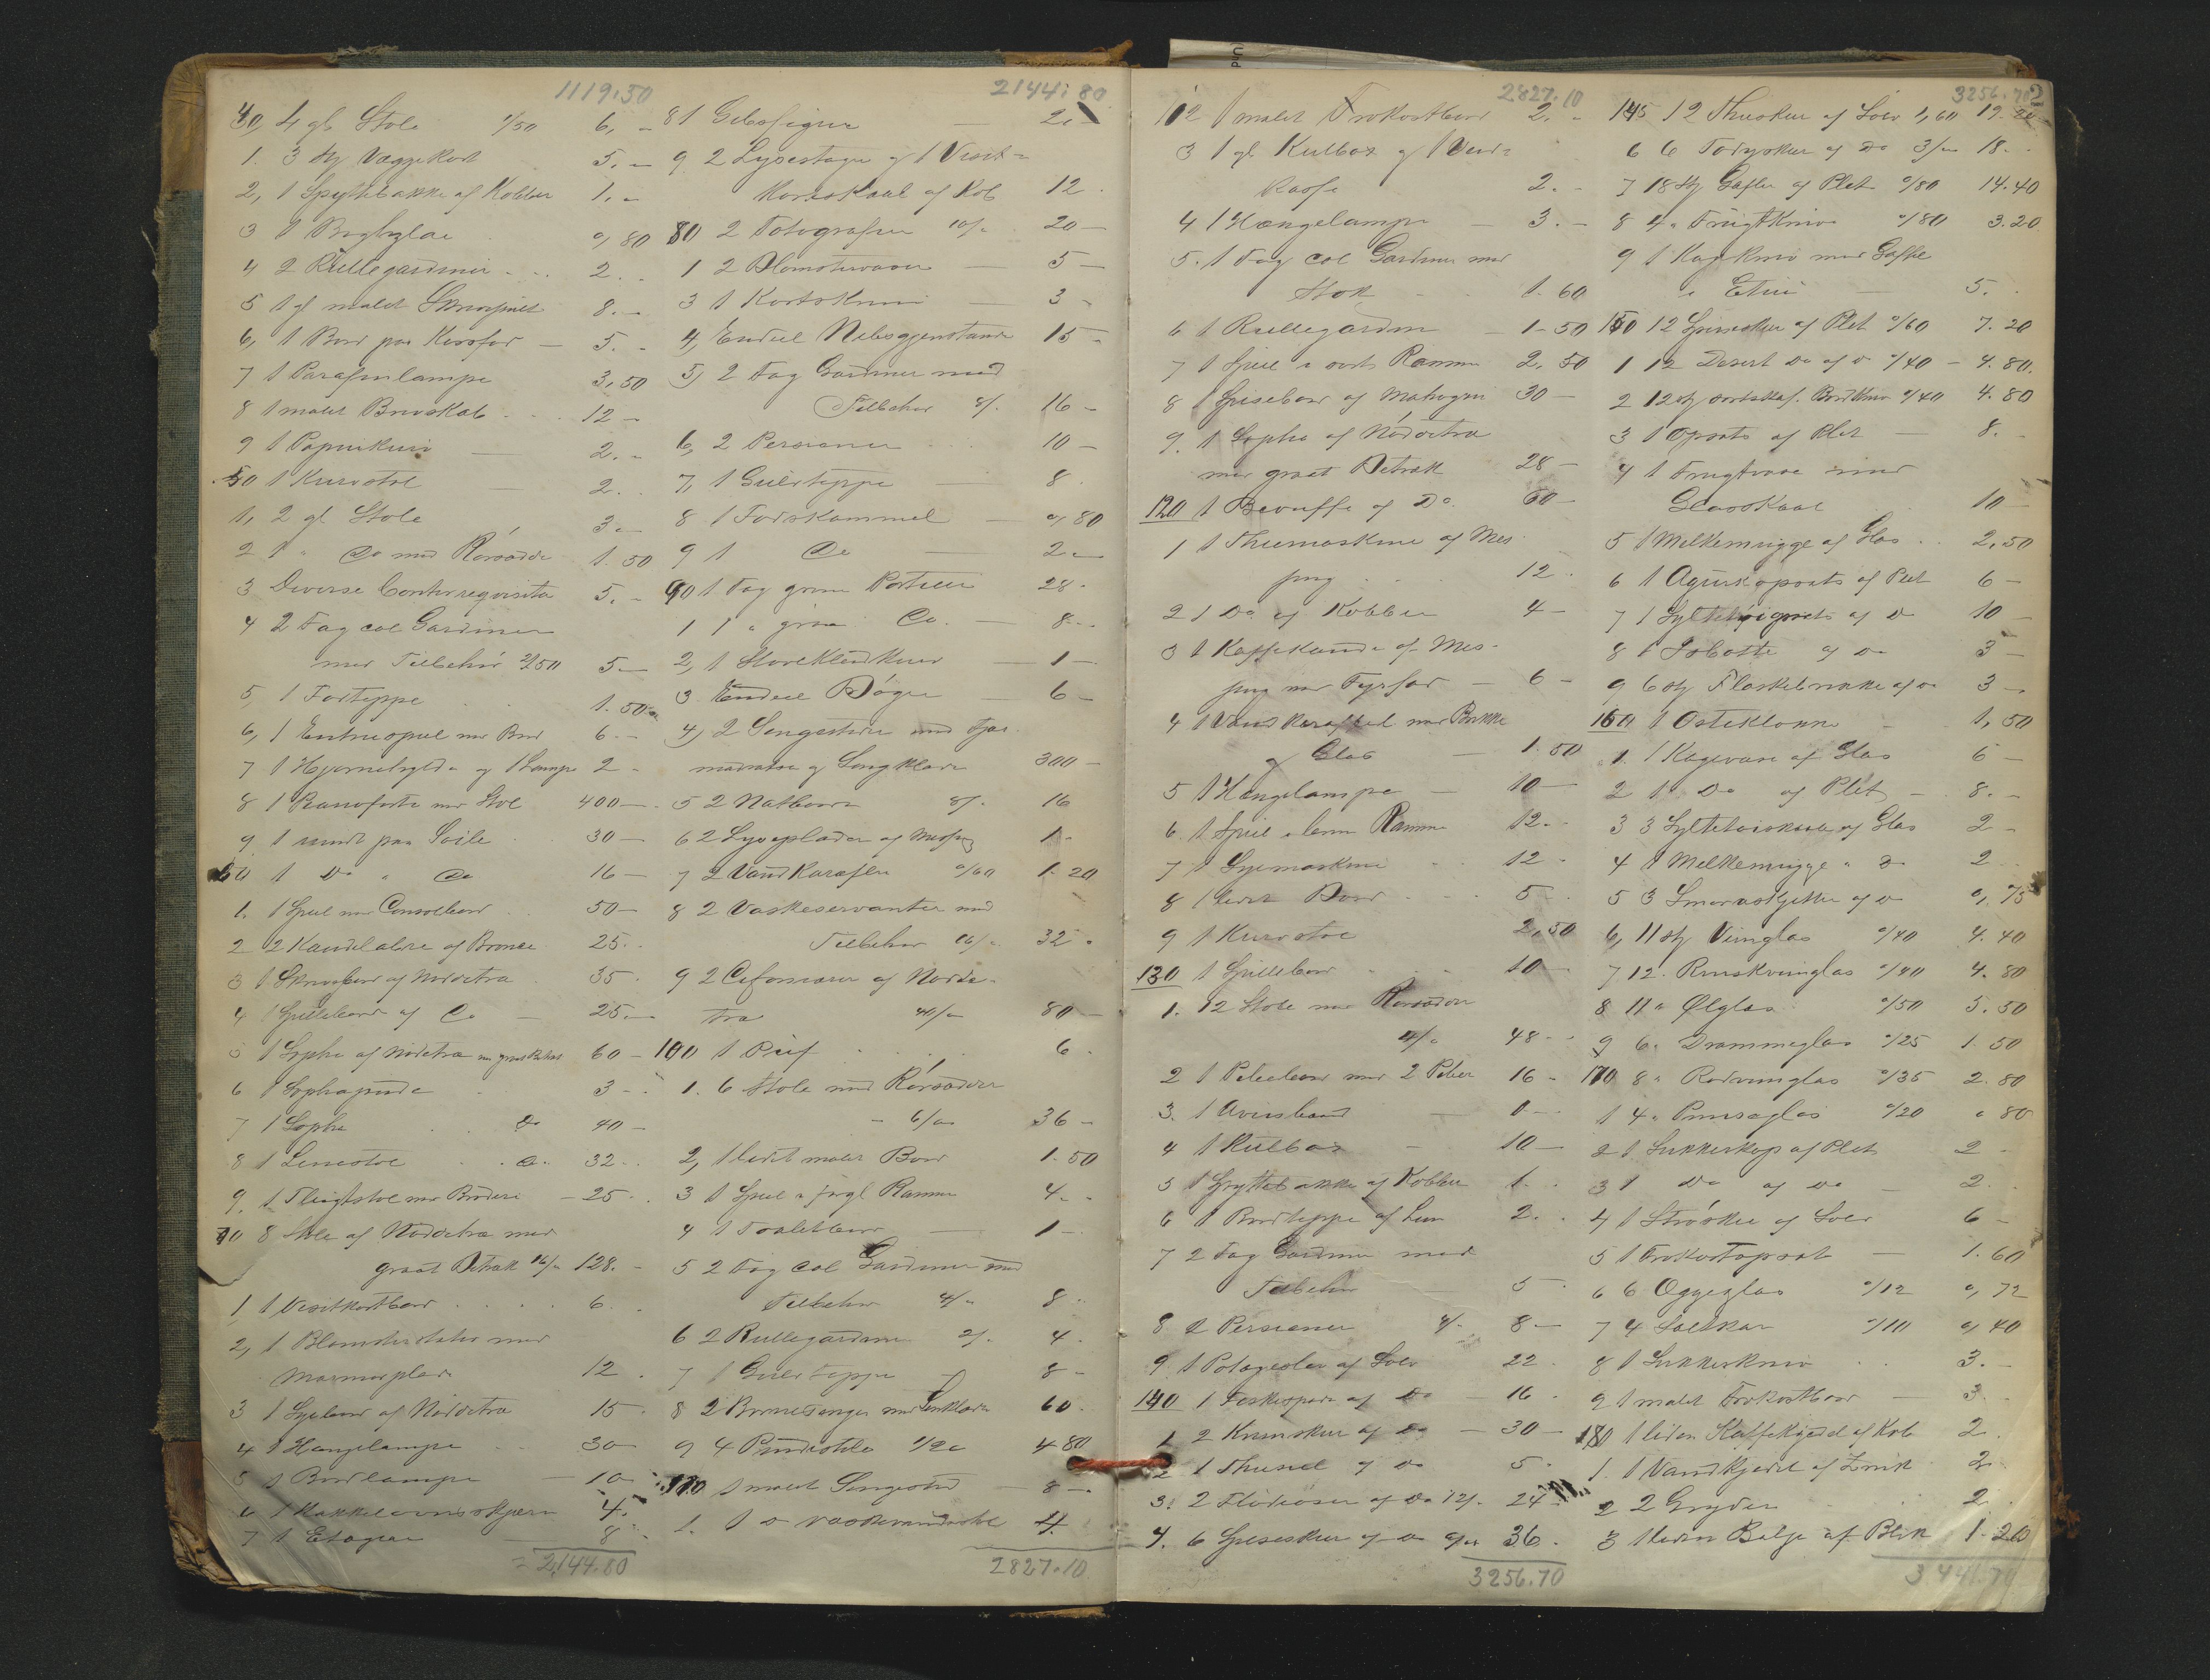 1119.30
40, 4 gl. Stole 1/50 6, -
1. 3 stk Væggekort 5. -
2, 1 Spyttebakke af Kobber 1. -
3 1 Boghylde 0,80
4 2 Rullegardiner 2. -
5 1 gl malet 8. -
6, 1 Bord paa 5. -
7 1 Parafinlampe 3,50
8 1 malet Brevskab 12 -
9 1 Papirkurv 2. -
50 1 Kurvstol 2.
1, 2 gl Stole 3. -
2 1 " Do med Rørsæde 1.50
3 Diverse Contorrequisita 5. -
4 2 Fag col Gardiner
med Tilbehør 2/50 5. -
5, 1 Forteppe 1.50
6, 1 Entrespeil med Bord 6. -
7 1 Hjørnehylde og 1 Lampe 2 -
8 1 Pianoforte med Stol 400 -
9 1 rundt paa Søile 30 -
60 1 Do " Do 16 -
1. 1 Speil med Consolbord 50 -
2 2 Kandelabre af Bronce 25. -
3 1 Skrivebord af Nøddetræ 35 -
4 1 Spillebord af Do 25. -
5 1 Sopha af Nødetræ med graat Betræk 60 -
6 1 Sophapude 3 -
7 1 Sopha Do 40 -
8 1 Lenestol Do 32. -
9. 1 Fløistol med Broderi 25 -
70 8 Stole af Nøddetræ med
graat Betræk 16/- 128. -
1, 1 Visitkortbord 6. -
2, 1 Blomsterstativ med
Marmorplade 12.
3 1 Sybord af Nøddetræ 15
4 1 Hængelampe 30
5 1 Bordlampe 10
6 1 Kakkelovnsskjærm 4.
7 1 Etagere 8 -
= 2144.80
2144.80
81 Gibsfigur 2. -
9 2 Lysestager og 1 Visit-
kortskaal af Kob 12.
80 2 Fotografier 10/- 20 -
1 2 Blomstervaser 5 -
3 1 Kortskrin 3 -
4, Endeel Nipsgjenstande 15 -
5, 2 Fag Gardiner med
Tilbehør 8/- 16 -
6, 2 Persienner 10 -
7, 1 Gulvteppe 8
8 1 Fodskammel 0,80
9 1 Do 2 -
90 1 Fag grøn Portiere 28 -
1 1 " grøn Do. 8. -
2, 1 1 -
3 Endeel Bøger 6 -
4, 2 Sengesteder med Fjær-
madrasse og Sengklæder 300 -
5 2 Natborde 8/- 16
6 2 Lyseplader af Messing 1 -
7 2 Vandkarafler 0/60 1.20
8 2 Vaskeservanter med
Tilbehør 16/- 32 -
9 2 Chifonierer af Nødde-
træ 40/- 80 -
100 1 Puf 6 -
1. 6 Stole med Rørsæder
6/- 36 -
2, 1 lidet malet Bord 1.50
3 1 Speil i forgl Ramme 4. -
4 1 Toiletbord 1 -
5 2 Fag col Gardiner med
Tilbehør 4/- 8 -
6 2 Rullegardiner 2/- 4 -
7 1 Gulvteppe 8 -
8 2 Bronsesenge med Sengklæder 60 -
9 4 Pindestole 1/20 4.80
110 1 malet Sengested 8 -
1. 1 Do Vaskevandsstol 4
2827.10
2827.10
112 1 malet Frokostbord 2. -
3 1 gl. Kulbox og 1 Ved-
kasse 2. -
4 1 Hængelampe 3. -
5. 1 Fag col Gardiner med
Stok 1.60
6 1 Rullegardin 1.50
7 1 Speil i sort Ramme 2.50
8 1 Spisebord af Mahogni 30 -
9. 1 Sopha af Nøddetræ
med graat Betræk 28 -
120 1 Beouffe af Do 60 -
1 1 Themaskine af Mes-
sing 12 -
2 1 Do af Kobber 4 -
3 1 Kaffekande af Mes-
sing med Fyrfad 6 -
4 1 Vandkaraffel med Bakke
og Glas 1.50
5 1 Hængelampe 10 -
6 1 Speil i brun Ramme 12. -
7 1 Symaskine 12 -
8 1 lidet Bord 5 -
9 1 Kurvstol 2,50
130 1 Spillebord 10 -
1. 12 Stole med Rørsæder
4/- 48 -
2 1 Pidebord med 2 Pider 16 -
3. 1 Avisbord 1 -
4 1 Kulbox 10 -
5 1 Spyttebakke af Kobber 1. -
6 1 Bordteppe af Lin 2. -
7 2 Fag Gardiner med
Tilbehør 5 -
8 2 Persienner 4/- 8 -
9. 1 Potageslev af Sølv 22 -
140 1 Fiskespade af Do 16 -
1 2 Kremskeer af Do 30 -
2 1 Thesil af Do 5 -
3. 2 Flødeøser af Do 12/- 24 -
4. 6 Spiseskeer af Do 6/- 36 -
3256.70
3256.70
2
145 12 Theskeer af Sølv 1,60 19.20
6 6 Forgskeer af Do 3/- 18. -
7 18 stk Gafler af Plet 0/80 14.40
8 4 " Frugtknive 0/80 3.20
9 1 Kagekniv med Gaffel
i Etui 5. -
150 12 Spiseskeer af Plet 0/60 7.20
1 12 Desert Do af Do 0/40 4.80
2 12 stk sortskaf. Bordknive 0/40 4.80
3 1 Opsats af Plet 8. -
4 1 Frugtvase med
Glasskaal 10 -
5 1 Melkemugge af Glas 2,50
6 1 Agurkopsats af Plet 6 -
7 1 Syltetøiopsats af Do 10 -
8 1 Isbøtte af Do 3 -
9 6 stk Flaskebrikker af Do 3 -
160 1 Osteklokke 1,50
1. 1 Kagevase af Glas 6 -
2 1 Do af Plet 8. -
3 3 Syltetøiskaale af Glas 2 -
4 1 Melkemugge " Do 2 -
5 3 Smørasjetter af Do 0,75
6, 11 stk Vinglas 0/40 4.40
7 12 " Rinskvinglas 0/40 4.80
8 11 " Ølglas 0/50 5.50
9 6 " Drammeglas 0/25 1.50
170 8 " Rødvinglas 0/35 2.80
1 4 " Punseglas 0/20 0 80
2 1 Sukkerkop af Plet 2 -
3 1 Do af Do 2. -
4 1 Strøskee af Sølv 6 -
5 1 Frokostopsats 1.60
6 6 Eggeglas 0/12 0,72
7 4 Saltkar 0/10 0,40
8 1 Sukkerkniv 3. -
9 1 malet Frokostbord 3. -
180 1 liden Kaffekjedel af Kob 2.
1. 1 Vandkjedel af Zink 2
2 2 Gryder 2. -
3 1 liden Balje af Blik 1.20
3441.7